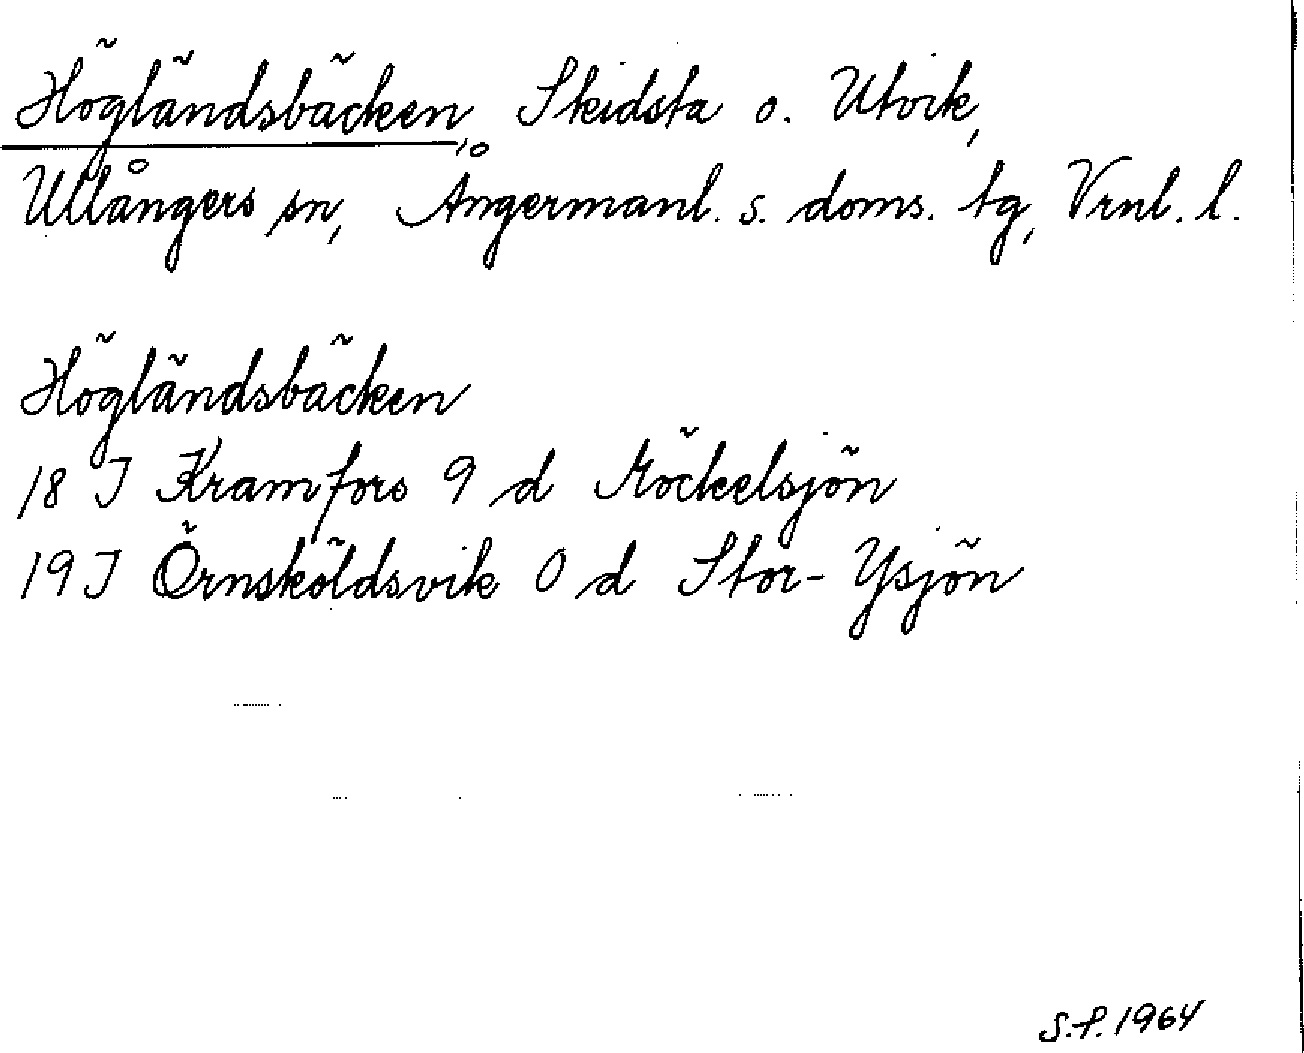 Högländsbäcken, Skidsta o. Utvik,
Ullångers sn, Ångermanl. s. doms. tg, Vrnl. l.
Högländsbäcken
18 I Kramfors 9 d Möckelsjön
19 J Örnsköldsvik 0 d Stor-Ysjön
S.F. 1964